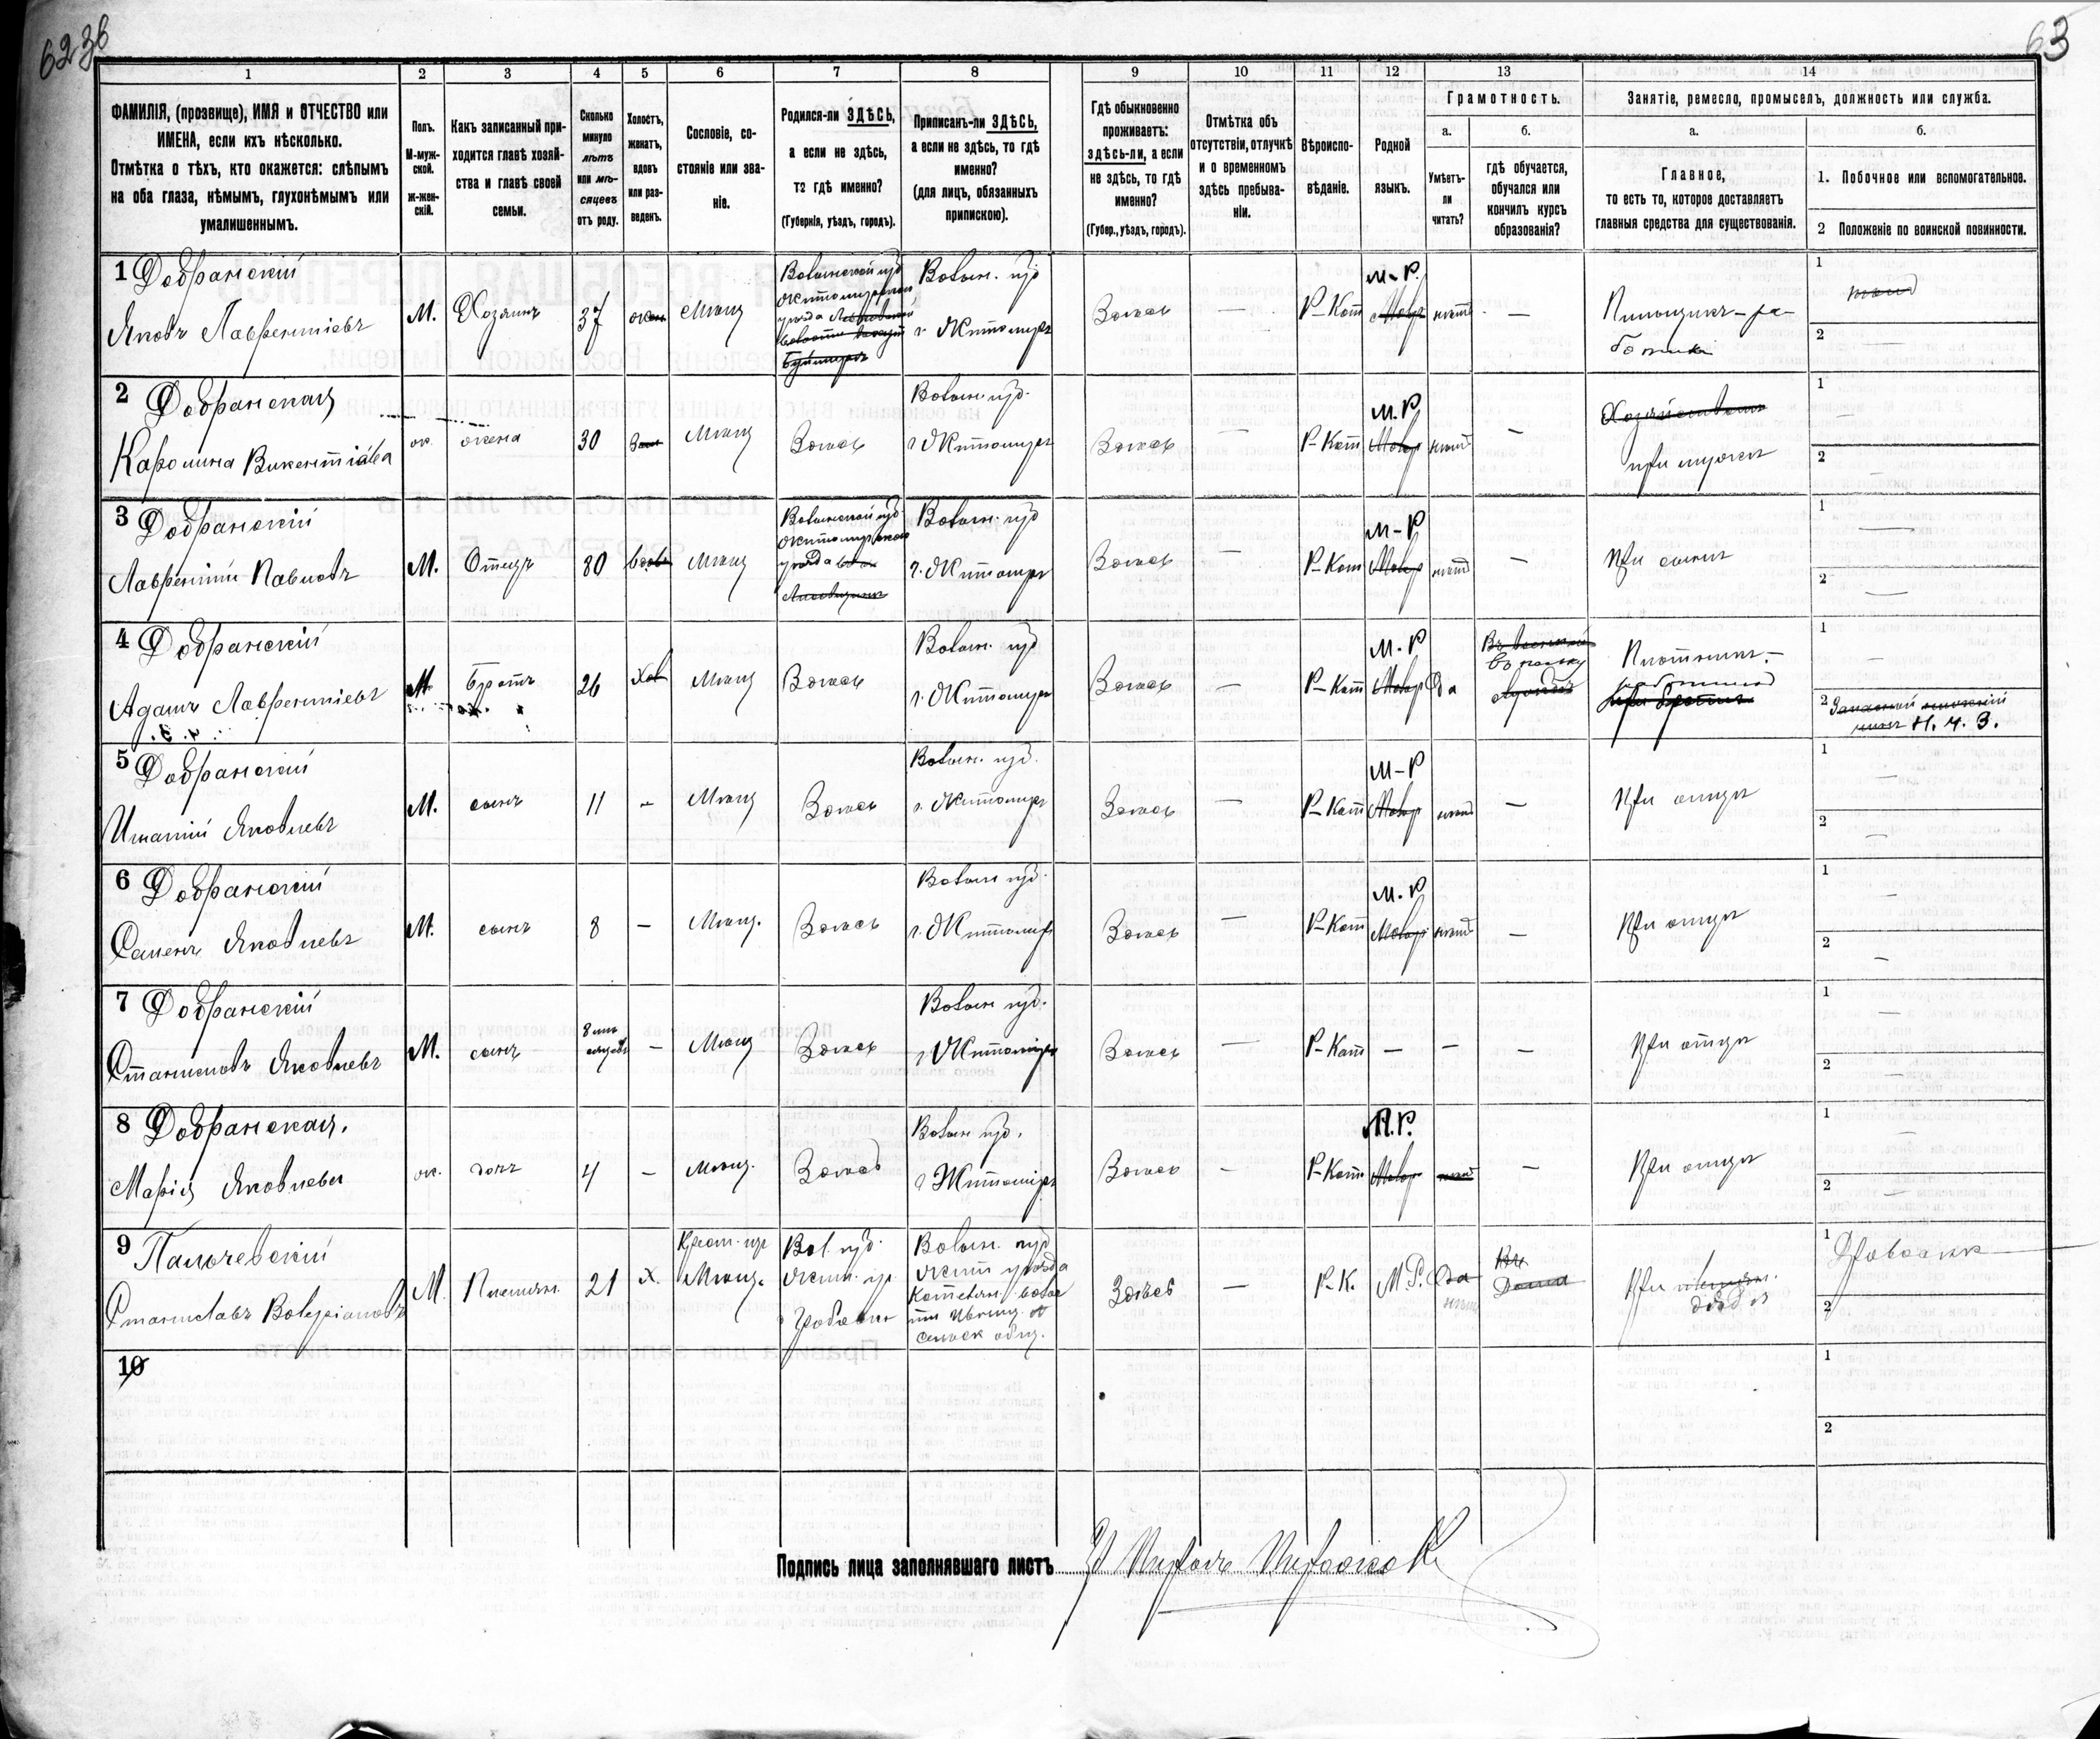 62 зв
63
1 2 3 4 5 6 7 8 9 10 11 12 13 14
ФАМИЛІЯ, (прозвище), ИМЯ и ОТЧЕСТВО или
ИМЕНА, если ихъ нѣсколько.
Отмѣтка о тѣхъ, кто окажется: слѣпымъ
на оба глаза, нѣмымъ, глухонѣмымъ или
умалишеннымъ.
Полъ.
М-муж-
ской.
ж-жен-
скій.
Какъ записанный при-
ходится главѣ хозяй-
ства и главѣ своей
семьи.
Сколько
минуло
лѣтъ
или мѣ-
сяцевъ
отъ роду.
Холостъ,
женатъ,
вдовъ
или раз-
веденъ.
Сословіе, со-
стояніе или зва-
ніе.
Родился-ли ЗДѢСЬ,
а если не здѣсь,
то гдѣ именно?
(Губернія, уѣздъ, городъ).
Приписанъ-ли ЗДѢСЬ,
а если не здѣсь, то гдѣ
именно?
(для лицъ, обязанныхъ
припискою).
Гдѣ обыкновенно
проживаетъ:
здѣсь-ли, а если
не здѣсь, то гдѣ
именно?
(Губер., уѣздъ, городъ).
Отмѣтка объ
отсутствіи, отлучкѣ
и о временномъ
здѣсь пребыва-
ніи.
Вѣроиспо-
вѣданіе.
Родной
языкъ.
Грамотность.
а.
Умѣетъ-
ли
читать?
б.
гдѣ обучается,
обучался или
кончилъ курсъ
образованія?
Занятіе, ремесло, промыселъ, должность или служба.
а.
Главное,
то есть то, которое доставляетъ
главныя средства для существованія.
б.
1. Побочное или вспомогательное.
2 Положеніе по воинской повинности.
1 Добранскій
Яковъ Лаврентіевъ
М.
Хозяинъ
37
жен
Мѣщ
Волынской губ
Житомірскаго
уѣзда
Волын. губ
г Житоміръ
Здѣсь
—
Р-Кат
М-Р.
Малор
нѣтъ
—
Пильщикъ-ра-
ботникъ
1
2 —
2 Добранская
Каролина Викентіева
ж.
жена
30
Зам
Мѣщ
Здѣсь
Волын. губ.
г Житоміръ
Здѣсь
—
Р-Кат
М.Р
Малор
нѣтъ
—
Хозяйствомъ
при мужѣ
1 —
2 —
3 Добранскій
Лаврентій Павловъ
М.
Отецъ
80
вдовъ
Мѣщ
Волынской губ
Житомірскаго
уѣзда
Волын. губ
г. Житоміръ
Здѣсь
—
Р-Кат
М-Р
Малор
нѣтъ
—
При сынѣ
1 —
2 —
4 Добранскій
Адамъ Лаврентіевъ
М
Братъ
26
Хол
Мѣщ
Здѣсь
Волын. губ
г. Житоміръ
Здѣсь
—
Р-Кат
М.Р
Малор
Да
въ полку
Плотникъ-
работникъ
при братѣ
1 —
2 Запасной
Н. Ч. З.
5 Добранскій
Игнатій Яковлевъ
М.
сынъ
11
-
Мѣщ
Здѣсь
Волын. губ.
г. Житоміръ
Здѣсь
—
Р-Кат
М-Р
Малор
нѣтъ
—
При отцѣ
1 —
2 —
6 Добранскій
Семенъ Яковлевъ
М.
сынъ
8
—
Мѣщ.
Здѣсь
Волын губ.
г. Житоміръ
Здѣсь
—
Р-Кат
М.Р
Малор
нѣтъ
—
При отцѣ
1 —
2 —
7 Добранскій
Станиславъ Яковлевъ
М.
сынъ
8 мѣ
сяцевъ
—
Мѣщ
Здѣсь
Волын губ.
г Житоміръ
Здѣсь
—
Р-Кат
—
—
—
При отцѣ
1 —
2 —
8 Добранская.
Марія Яковлева
ж.
дочь
4
—
Мѣщ.
Здѣсь
Волын губ.
г Житоміръ
Здѣсь
—
Р-Кат
М.Р.
Малор
нѣтъ
—
При отцѣ
1 —
2 —
9 Пальчевскій
Станиславъ Валеріановъ
М.
Племян.
21
Х.
Мѣщ.
Вол. губ.
Жит. у
Волын. губ
Жит уѣзда
Здѣсь
—
Р-К.
М.Р.
Да
нѣтъ
Дома
При
дядѣ
1
2
10
1
2
Подпись лица заполнявшаго листъ